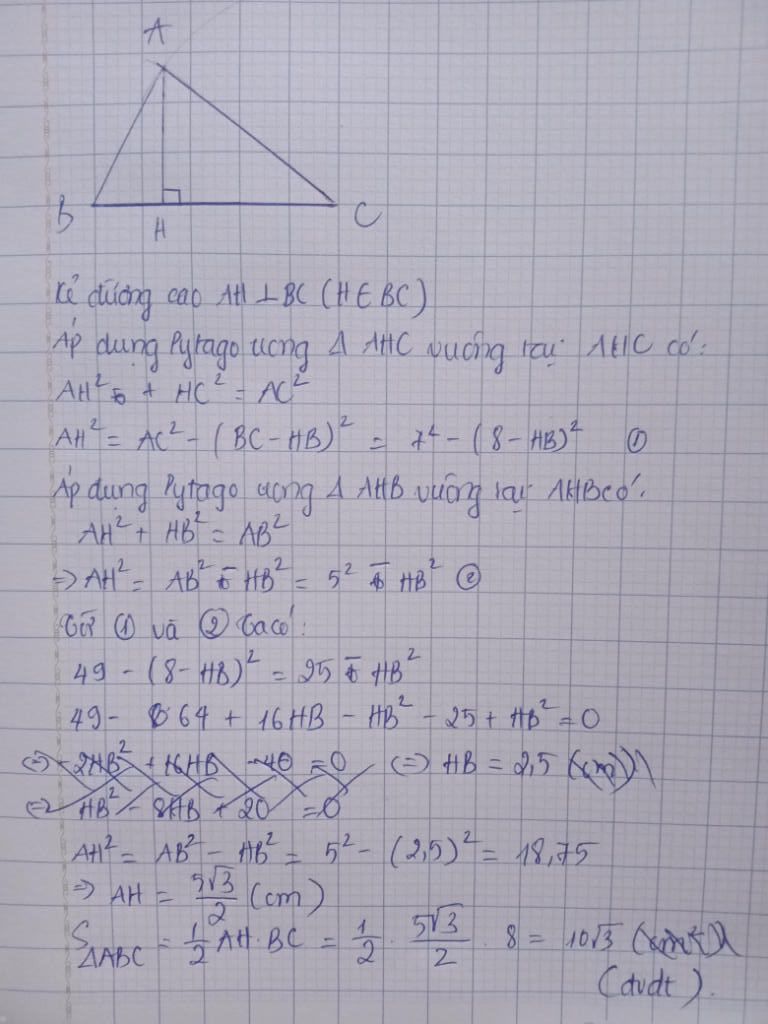 A
B
H
C
Kẻ đường cao AH ⊥ BC (H ∈ BC)
Áp dụng Pytago trong Δ AHC vuông tại AHC có:
AH² + HC² = AC²
AH² = AC² - (BC - HB)² = 7² - (8 - HB)² ①
Áp dụng Pytago trong Δ AHB vuông tại AHB có:
AH² + HB² = AB²
=> AH² = AB² - HB² = 5² - HB² ②
Từ ① và ② ta có:
49 - (8 - HB)² = 25 - HB²
49 - 64 + 16HB - HB² - 25 + HB² = 0
<=> -2HB² + 16HB - 40 = 0 <=> HB = 2,5 (cm)
<=> HB² - 8HB + 20 = 0
AH² = AB² - HB² = 5² - (2,5)² = 18,75
=> AH = 5√3/2 (cm)
S ΔABC = 1/2 AH·BC = 1/2 · 5√3/2 · 8 = 10√3 (cm²)
(đvdt).